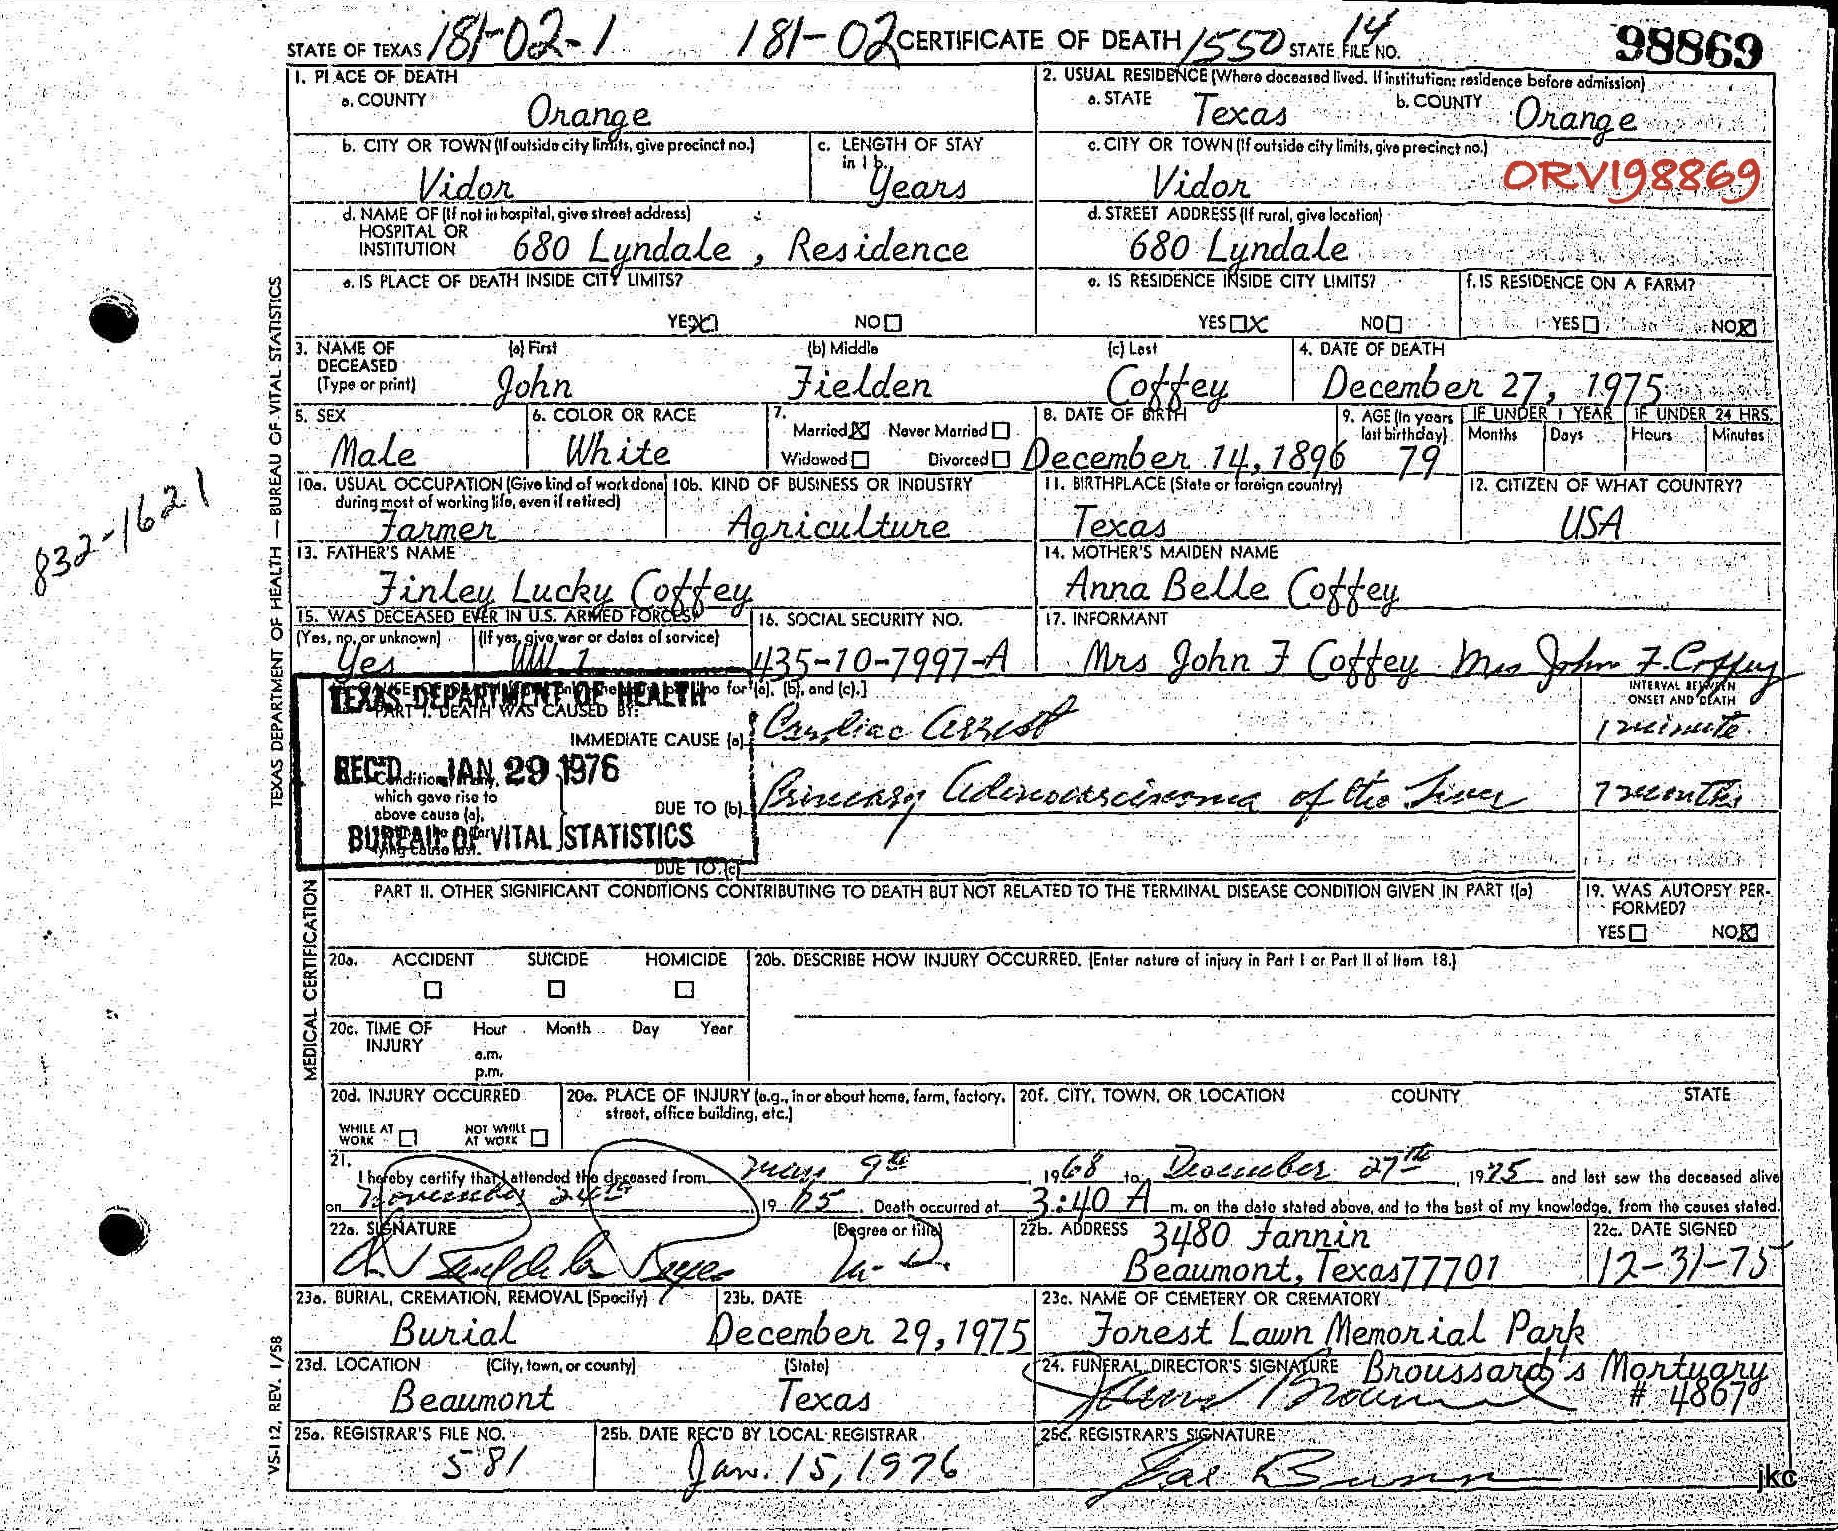 STATE OF TEXAS 181-02-1 181-02 CERTIFICATE OF DEATH 1550 STATE FILE NO. 14 98869
1. PLACE OF DEATH
a. COUNTY Orange
2. USUAL RESIDENCE (Where deceased lived. If institution: residence before admission)
a. STATE Texas b. COUNTY Orange
b. CITY OR TOWN (If outside city limits, give precinct no.) Vidor
c. LENGTH OF STAY in 1 b. Years
c. CITY OR TOWN (If outside city limits, give precinct no.) Vidor
ORV198869
d. NAME OF (If not in hospital, give street address) HOSPITAL OR INSTITUTION 680 Lyndale, Residence
d. STREET ADDRESS (If rural, give location) 680 Lyndale
e. IS PLACE OF DEATH INSIDE CITY LIMITS?
YES X NO
e. IS RESIDENCE INSIDE CITY LIMITS?
YES X NO
f. IS RESIDENCE ON A FARM?
YES NO X
3. NAME OF DECEASED (Type or print)
(a) First John
(b) Middle Fielden
(c) Last Coffey
4. DATE OF DEATH December 27, 1975
5. SEX Male
6. COLOR OR RACE White
7. Married X Never Married
Widowed Divorced
8. DATE OF BIRTH December 14, 1896
9. AGE (In years last birthday) 79
IF UNDER 1 YEAR Months Days
IF UNDER 24 HRS. Hours Minutes
10a. USUAL OCCUPATION (Give kind of work done during most of working life, even if retired) Farmer
10b. KIND OF BUSINESS OR INDUSTRY Agriculture
11. BIRTHPLACE (State or foreign country) Texas
12. CITIZEN OF WHAT COUNTRY? USA
13. FATHER'S NAME Finley Lucky Coffey
14. MOTHER'S MAIDEN NAME Anna Belle Coffey
15. WAS DECEASED EVER IN U.S. ARMED FORCES?
(Yes, no, or unknown) Yes
(If yes, give war or dates of service) WW 1
16. SOCIAL SECURITY NO. 435-10-7997-A
17. INFORMANT Mrs John F Coffey Mrs John F. Coffey
TEXAS DEPARTMENT OF HEALTH
REC'D JAN 29 1976
BUREAU OF VITAL STATISTICS
line for (a), (b), and (c).]
PART I. DEATH WAS CAUSED BY:
INTERVAL BETWEEN ONSET AND DEATH
IMMEDIATE CAUSE (a) Cardiac Arrest 1 minute
Conditions, if any,
which gave rise to
above cause (a),
lying cause last.
DUE TO (b) Primary Adenocarcinoma of the Liver 7 months
DUE TO (c)
PART II. OTHER SIGNIFICANT CONDITIONS CONTRIBUTING TO DEATH BUT NOT RELATED TO THE TERMINAL DISEASE CONDITION GIVEN IN PART I(a)
19. WAS AUTOPSY PERFORMED?
YES NO X
20a. ACCIDENT SUICIDE HOMICIDE
20b. DESCRIBE HOW INJURY OCCURRED. (Enter nature of injury in Part I or Part II of Item 18.)
20c. TIME OF INJURY Hour Month Day Year
a.m.
p.m.
20d. INJURY OCCURRED
WHILE AT WORK NOT WHILE AT WORK
20e. PLACE OF INJURY (e.g., in or about home, farm, factory, street, office building, etc.)
20f. CITY, TOWN, OR LOCATION COUNTY STATE
21. I hereby certify that I attended the deceased from May 9th 1968 to December 27th, 1975 and last saw the deceased alive
on November 24th 1975. Death occurred at 3:40 A m. on the date stated above, and to the best of my knowledge, from the causes stated.
22a. SIGNATURE (Degree or title) M.D.
22b. ADDRESS 3480 Fannin
Beaumont, Texas 77701
22c. DATE SIGNED 12-31-75
23a. BURIAL, CREMATION, REMOVAL (Specify) Burial
23b. DATE December 29, 1975
23c. NAME OF CEMETERY OR CREMATORY Forest Lawn Memorial Park
23d. LOCATION (City, town, or county) (State)
Beaumont Texas
24. FUNERAL DIRECTOR'S SIGNATURE Broussard's Mortuary
# 4867
25a. REGISTRAR'S FILE NO. 581
25b. DATE REC'D BY LOCAL REGISTRAR Jan. 15, 1976
25c. REGISTRAR'S SIGNATURE
jkc
832-1621
TEXAS DEPARTMENT OF HEALTH — BUREAU OF VITAL STATISTICS
MEDICAL CERTIFICATION
VS-112 REV. 1/58